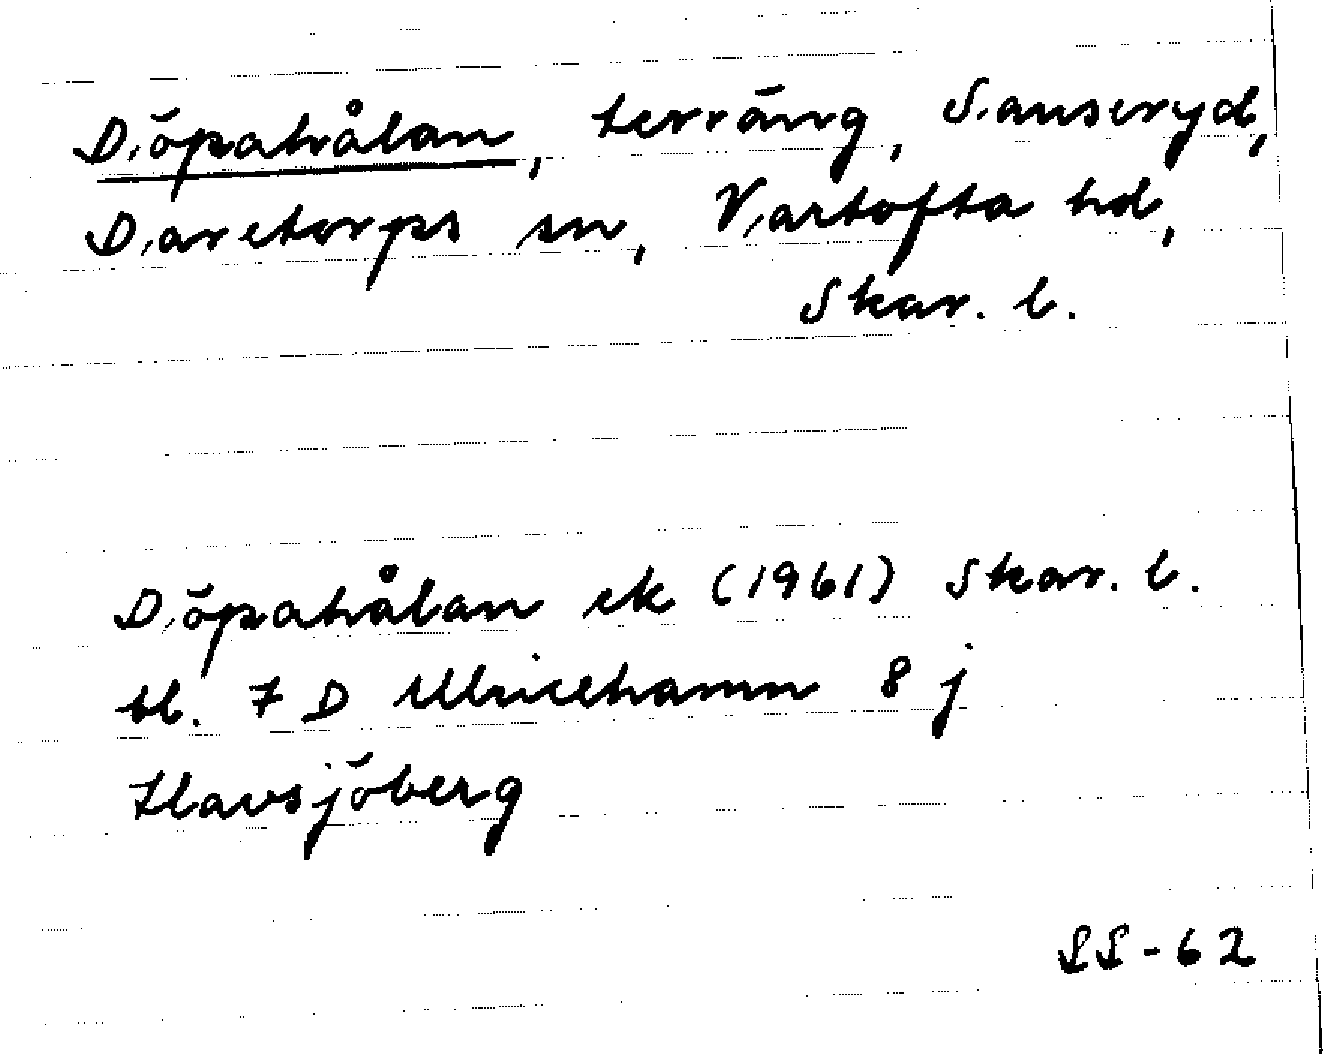 Döpahålan, terräng, Sanseryd,
Daretorps sn, Vartofta hd,
Skar. l.
Döpahålan ek (1961) Skar. l.
bl. 7 D Ulricehamn 8 j
Havsjöberg
SS-62